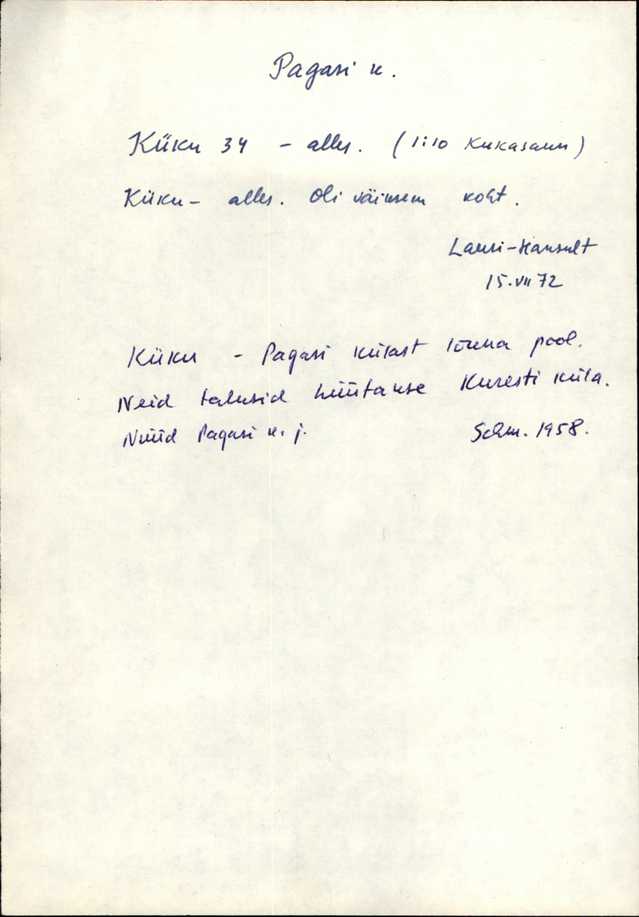 Pagari k.
Küku 34 - alles. (1:10 Kukasaun)
Küku - alles. Oli väiksem koht.
Lauri-Hansult
15.VII 72
Küku - Pagari külast lõuna pool.
Neid talusid hüütakse Kuresti küla.
Nüüd Pagari k. j.
Schm. 1958.